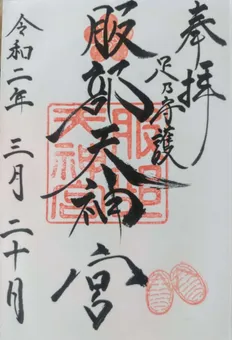 奉拝
足乃守護
服部天神宮
令和二年三月二十日
服部
天神宮